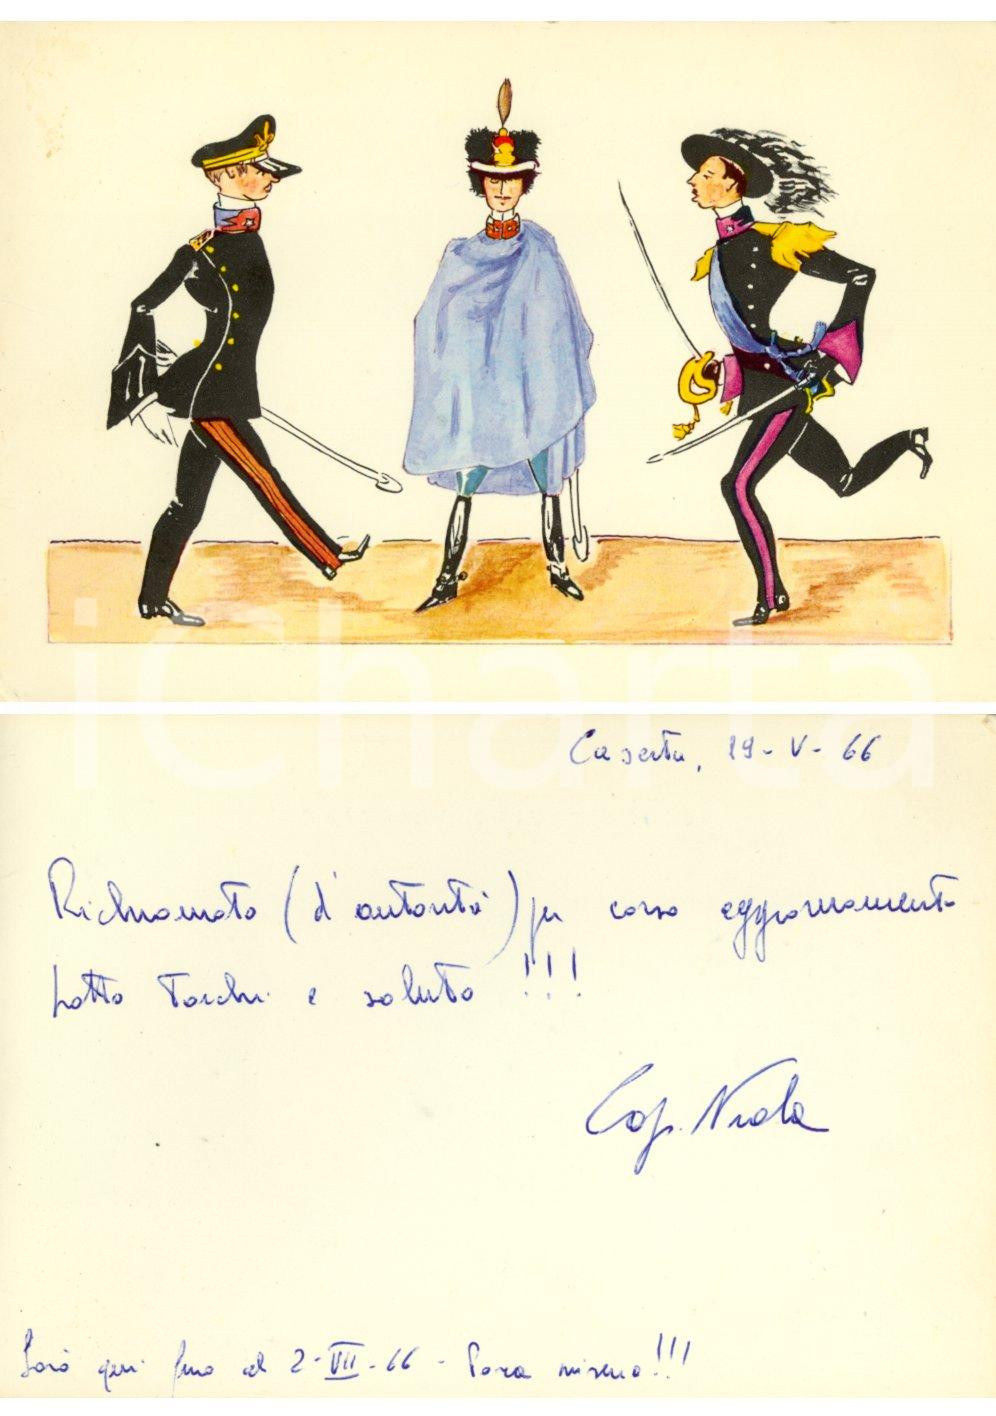 iCharta
Caserta, 19-V-66
Richiamato (d'autorità) per corso aggiornamento
batto tacchi e saluto !!!
Cap. Niola
Sarò qui fino al 2-VII-66 -